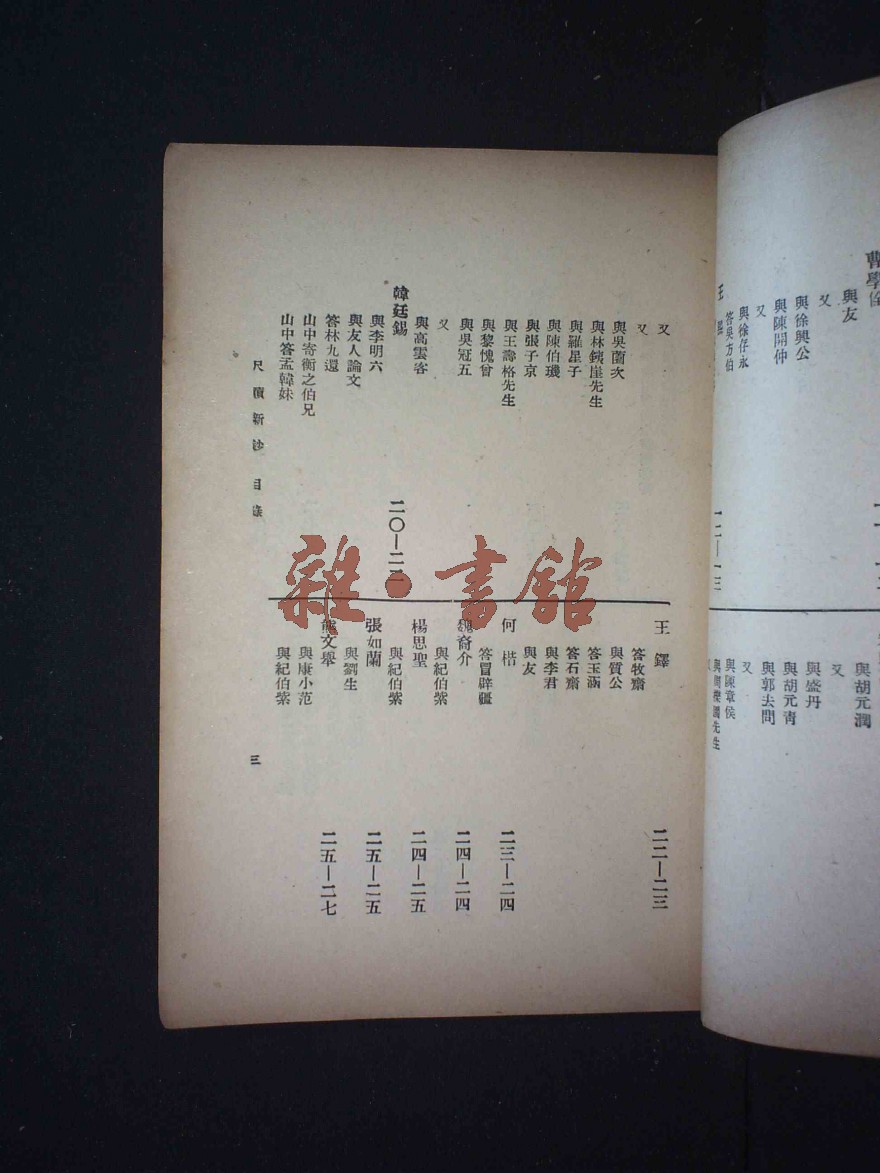 與友
又
與徐興公
與陳開仲
又
與徐仔永
答吳方伯
一二—一三
與胡元潤
與盛丹
又
與胡元青
與郭去問
與陳章侯
又
又
與吳薗次
與林鐵崖先生
與羅星子
與陳伯璣
與張子京
與王壽格先生
與黎愧曾
與吳冠五
又
與高雲客
韓廷錫
二〇—二二
與李明六
與友人論文
答林九還
山中寄衡之伯兄
山中答孟韓妹
王鐸
二二—二三
答牧齋
與質公
答玉涵
答石齋
與李君
與友
何楷
二三—二四
答冒辟疆
魏裔介
二四—二四
與紀伯紫
楊思聖
二四—二五
與紀伯紫
張如蘭
二五—二五
與劉生
熊文舉
二五—二七
與康小范
與紀伯紫
尺牘新鈔 目錄
三
雜·書館